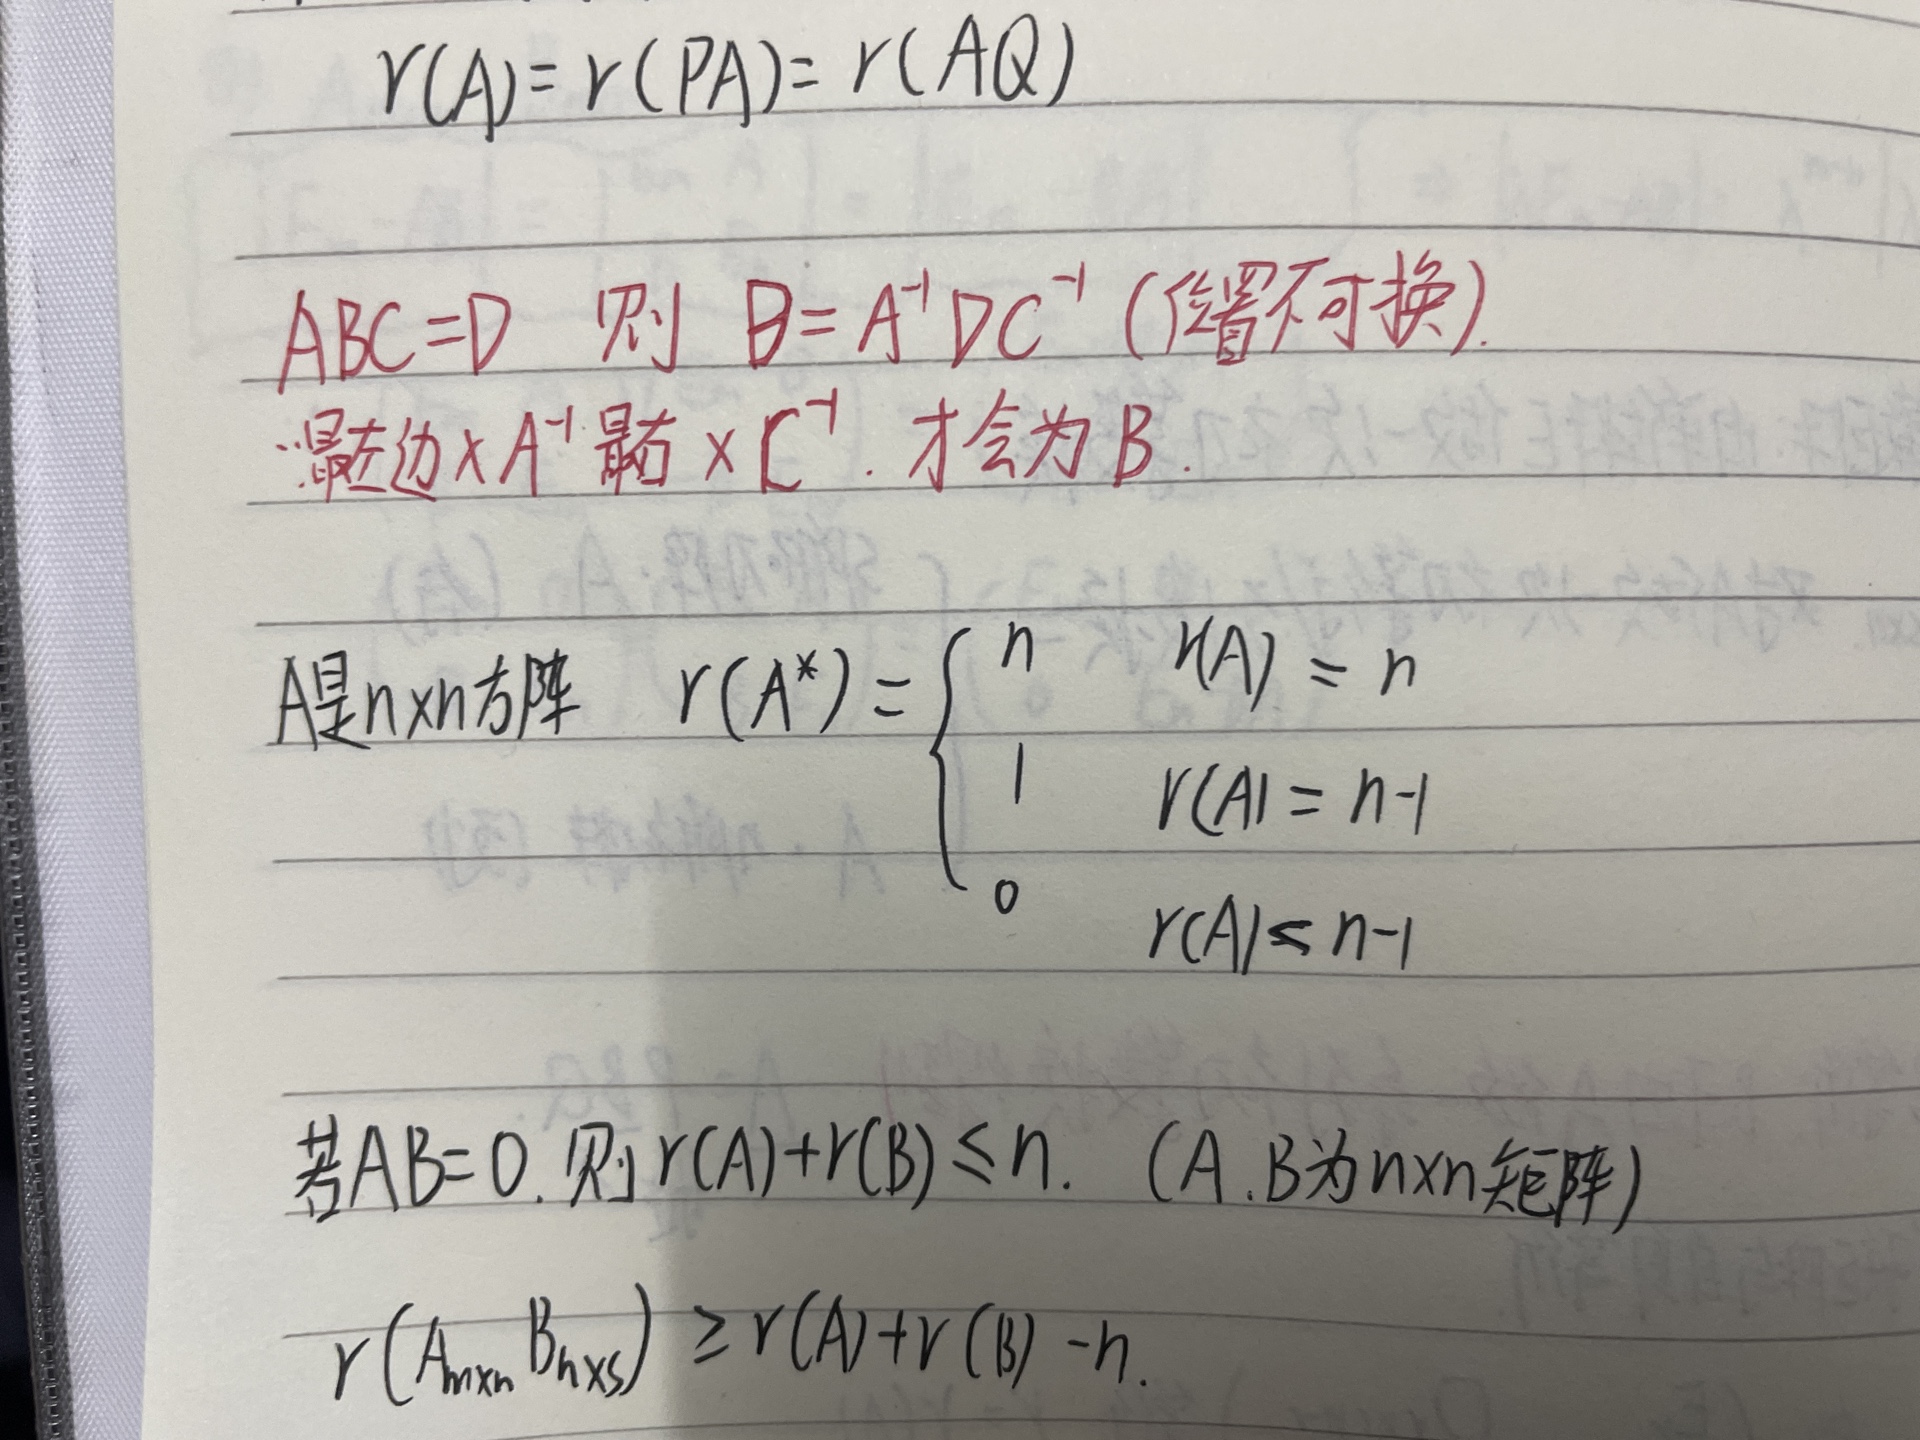 r(A)=r(PA)=r(AQ)
ABC=D 则 B=A⁻¹DC⁻¹ (位置不可换).
∵最左边×A⁻¹ 最右×C⁻¹. 才会为B.
A是n×n方阵 r(A*)= { n r(A)=n
1 r(A)=n-1
0 r(A)≤n-1
若AB=0.则r(A)+r(B)≤n. (A.B为n×n矩阵)
r(Am×n Bn×s)≥r(A)+r(B)-n.